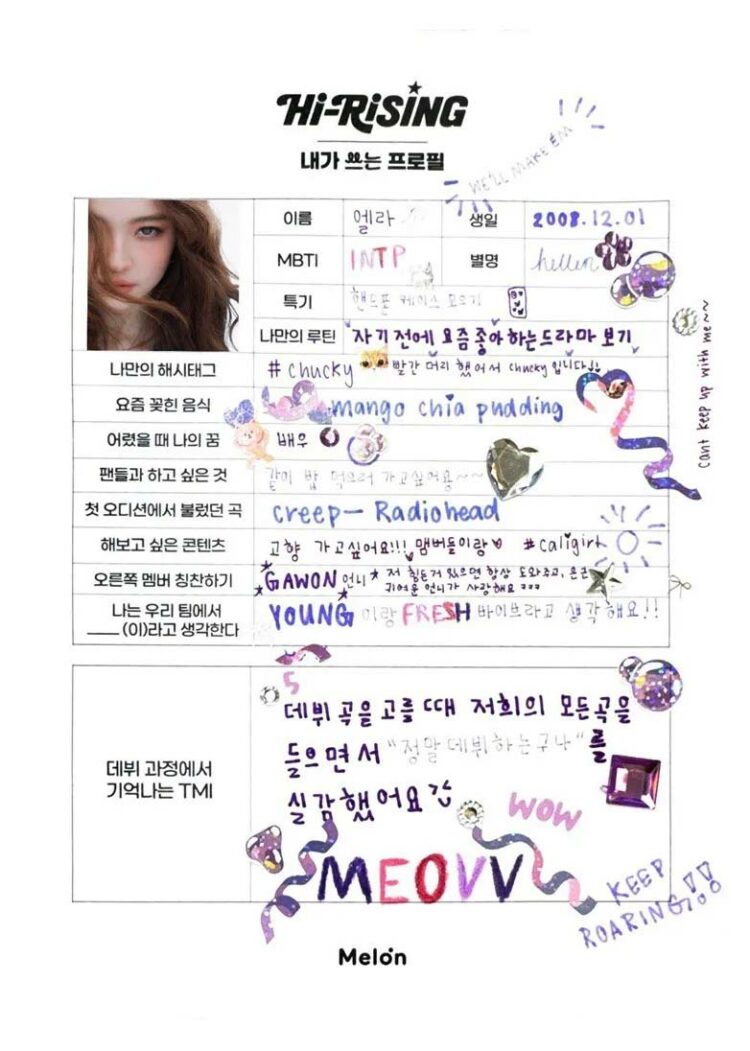 Hi-RiSiNG
내가 쓰는 프로필
WE'LL MAKE EM
이름 엘라 생일 2008.12.01
MBTI INTP 별명 hellen
특기 핸드폰 케이스 모으기
나만의 루틴 자기 전에 요즘 좋아하는 드라마 보기
나만의 해시태그 #chucky 빨간 머리 했어서 chucky 입니다!!
요즘 꽂힌 음식 mango chia pudding
어렸을 때 나의 꿈 배우
팬들과 하고 싶은 것 같이 밥 먹으러 가고싶어용~~
첫 오디션에서 불렀던 곡 creep - Radiohead
해보고 싶은 콘텐츠 고향 가고싶어요!!! 맴버들이랑 #caligirl
오른쪽 멤버 칭찬하기 GAWON 언니 저 힘든거 있으면 항상 도와주고, 은근
귀여운 언니가 사랑해요 ㅋㅋㅋ
나는 우리 팀에서 YOUNG 이랑 FRESH 바이브라고 생각해요!!
____ (이)라고 생각한다
cant keep up with me~~
5
데뷔 곡을 고를 때 저희의 모든곡을
데뷔 과정에서 들으면서 "정말 데뷔하는구나"를
기억나는 TMI
실감했어요
WOW
MEOVV
KEEP
ROARING!!
Melon